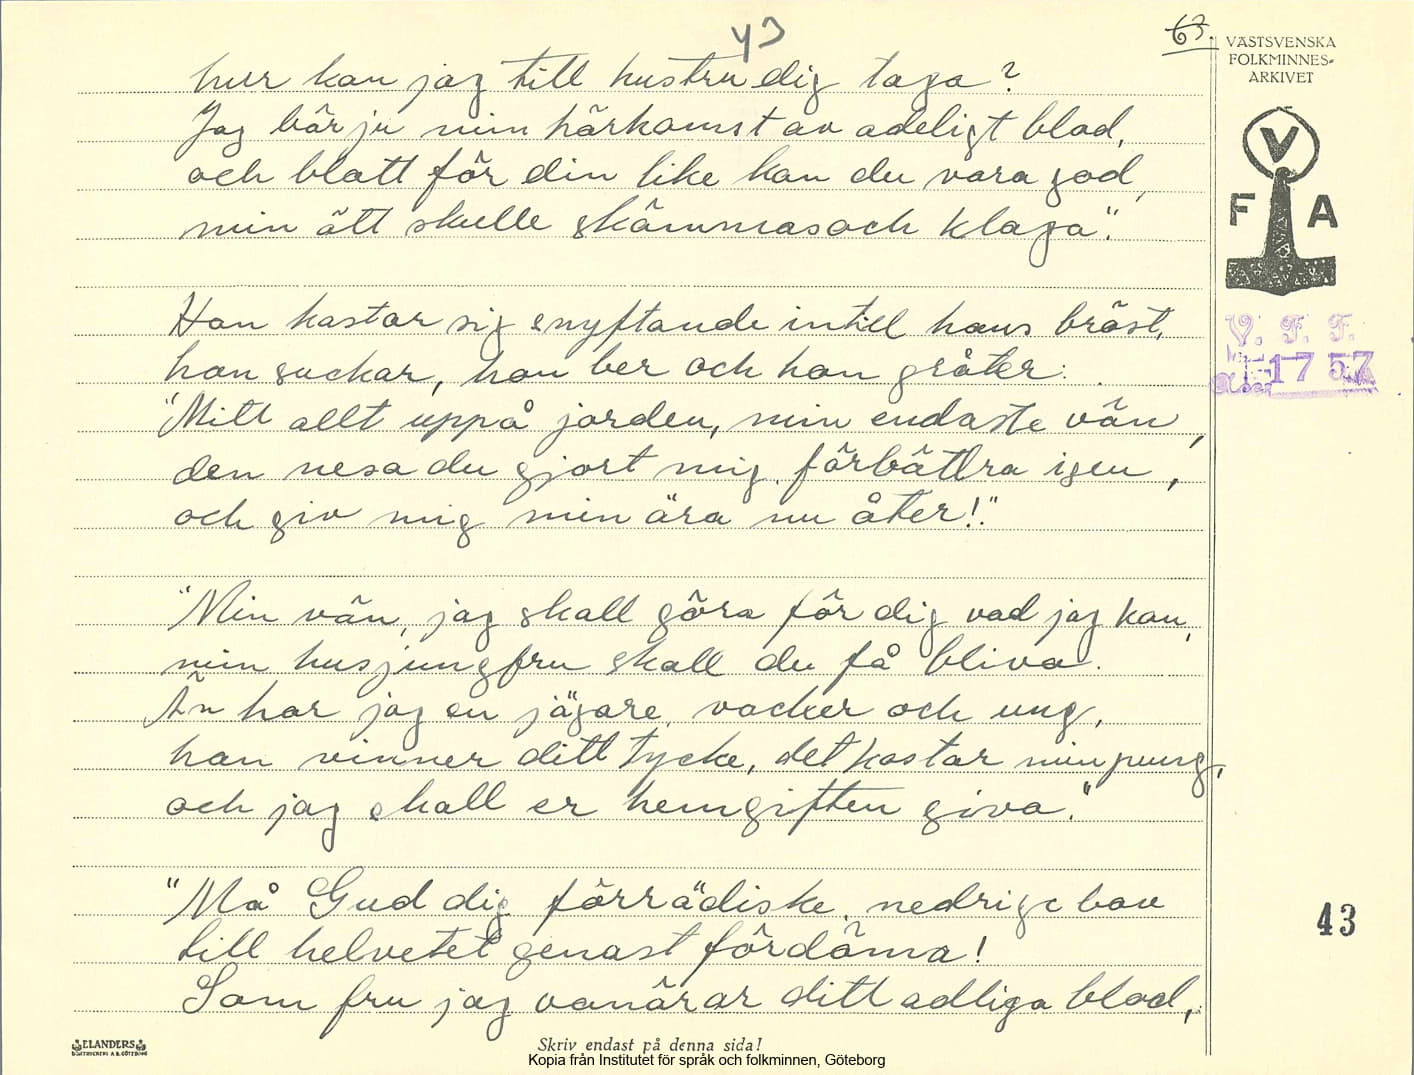 43
63.
VÄSTSVENSKA
FOLKMINNES-
ARKIVET
V
F A
V. F. F.
1757
hur kan jag till hustru dig taga?
Jag bär ju min härkomst av adeligt blod,
och blott för din like kan du vara god,
min ätt skulle skämmas och klaga".
Hon kastar sig snyftande intill hans bröst,
hon suckar, hon ber och hon gråter:
"Mitt allt uppå jorden, min endaste vän,
den nesa du gjort mig, förbättra igen,
och giv mig min ära nu åter!"
"Min vän, jag skall göra för dig vad jag kan,
min husjungfru skall du få bliva.
Än har jag en jägare, vacker och ung,
han vinner ditt tycke, det kostar min pung,
och jag skall er hemgiften giva."
"Må Gud dig förrädiske, nedrige bov
till helvetet genast fördöma!
Som fru jag vanärar ditt adliga blod,
43
ELANDERS
BOKTRYCKERI A.B. GÖTEBORG
Skriv endast på denna sida!
Kopia från Institutet för språk och folkminnen, Göteborg